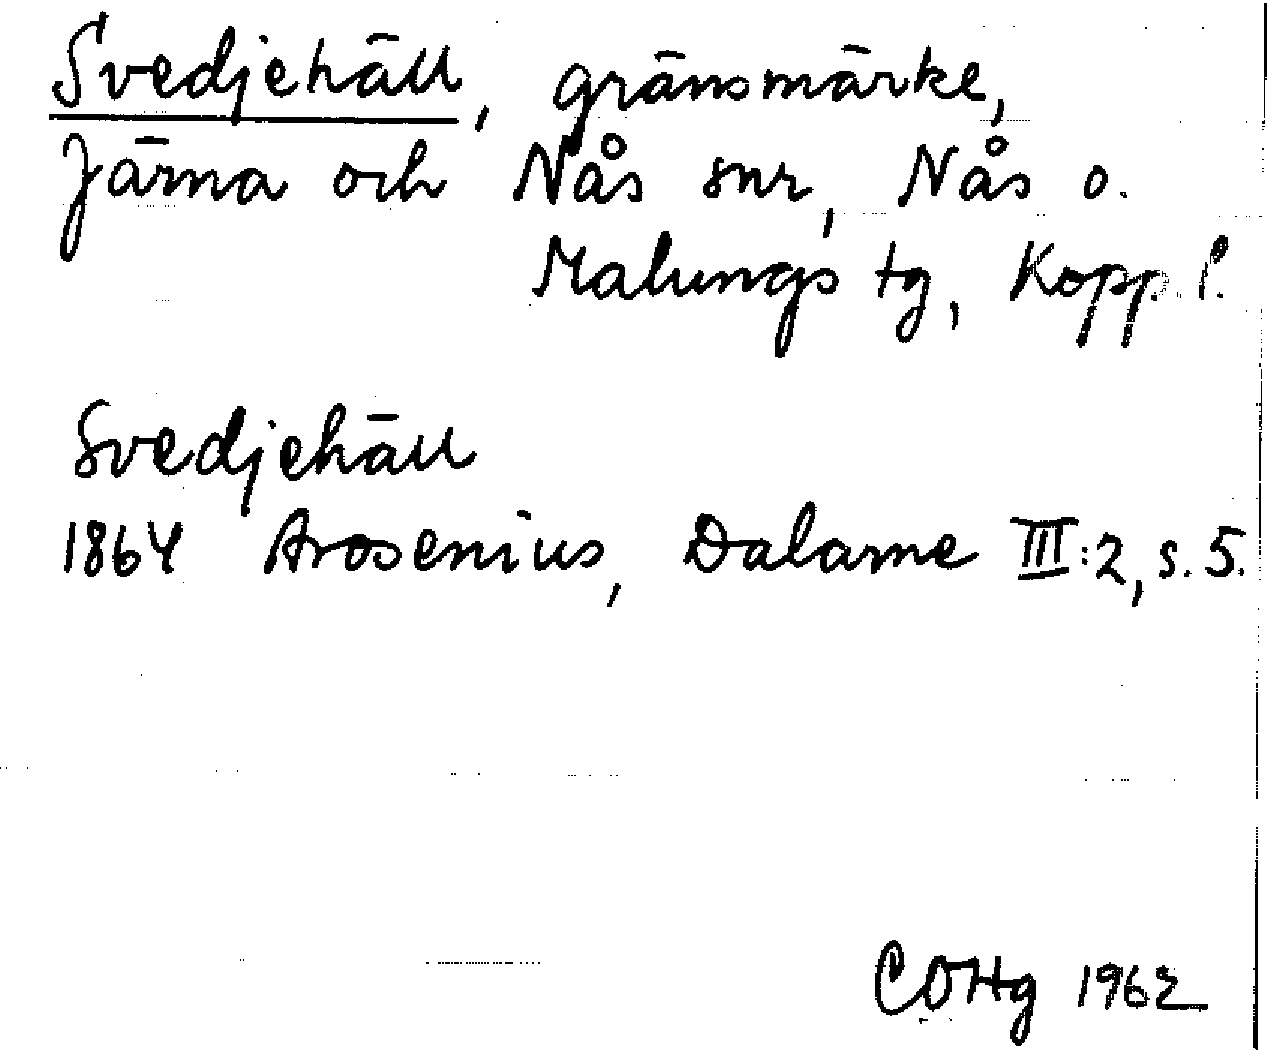 Svedjehäll, gränsmärke,
Järna och Nås snr, Nås o.
Malungs tg, Kopp. l.
Svedjehäll
1864 Arosenius, Dalarne III:2, s. 5.
COHg 1962